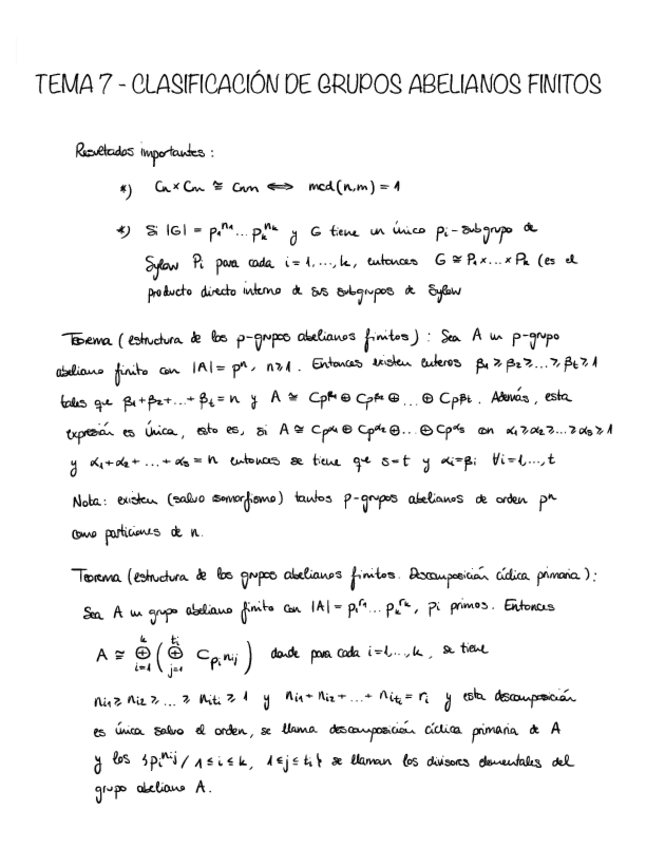 TEMA 7 - CLASIFICACIÓN DE GRUPOS ABELIANOS FINITOS
Resultados importantes:
*) Cn × Cm ≅ Cnm ⟺ mcd(n,m) = 1
*) Si |G| = p₁^n₁ ... pₖ^nₖ y G tiene un único pi-subgrupo de
Sylow Pi para cada i = 1, ..., k, entonces G ≅ P₁ × ... × Pₖ (es el
producto directo interno de sus subgrupos de Sylow
Teorema (estructura de los p-grupos abelianos finitos): Sea A un p-grupo
abeliano finito con |A| = pⁿ, n ≥ 1. Entonces existen enteros β₁ ≥ β₂ ≥ ... ≥ βt ≥ 1
tales que β₁ + β₂ + ... + βt = n y A ≅ Cp^β₁ ⊕ Cp^β₂ ⊕ ... ⊕ Cp^βt. Además, esta
expresión es única, esto es, si A ≅ Cp^α₁ ⊕ Cp^α₂ ⊕ ... ⊕ Cp^αs con α₁ ≥ α₂ ≥ ... ≥ αs ≥ 1
y α₁ + α₂ + ... + αs = n entonces se tiene que s = t y αi = βi ∀i = 1, ..., t
Nota: existen (salvo isomorfismo) tantos p-grupos abelianos de orden pⁿ
como particiones de n.
Teorema (estructura de los grupos abelianos finitos. Descomposición cíclica primaria):
Sea A un grupo abeliano finito con |A| = p₁^r₁ ... pₖ^rₖ, pi primos. Entonces
A ≅ ⊕_{i=1}^{k} ( ⊕_{j=1}^{ti} C_{pi^nij} ) donde para cada i = 1, ..., k, se tiene
ni1 ≥ ni2 ≥ ... ≥ niti ≥ 1 y ni1 + ni2 + ... + niti = ri y esta descomposición
es única salvo el orden, se llama descomposición cíclica primaria de A
y los {pi^nij / 1 ≤ i ≤ k, 1 ≤ j ≤ ti} se llaman los divisores elementales del
grupo abeliano A.